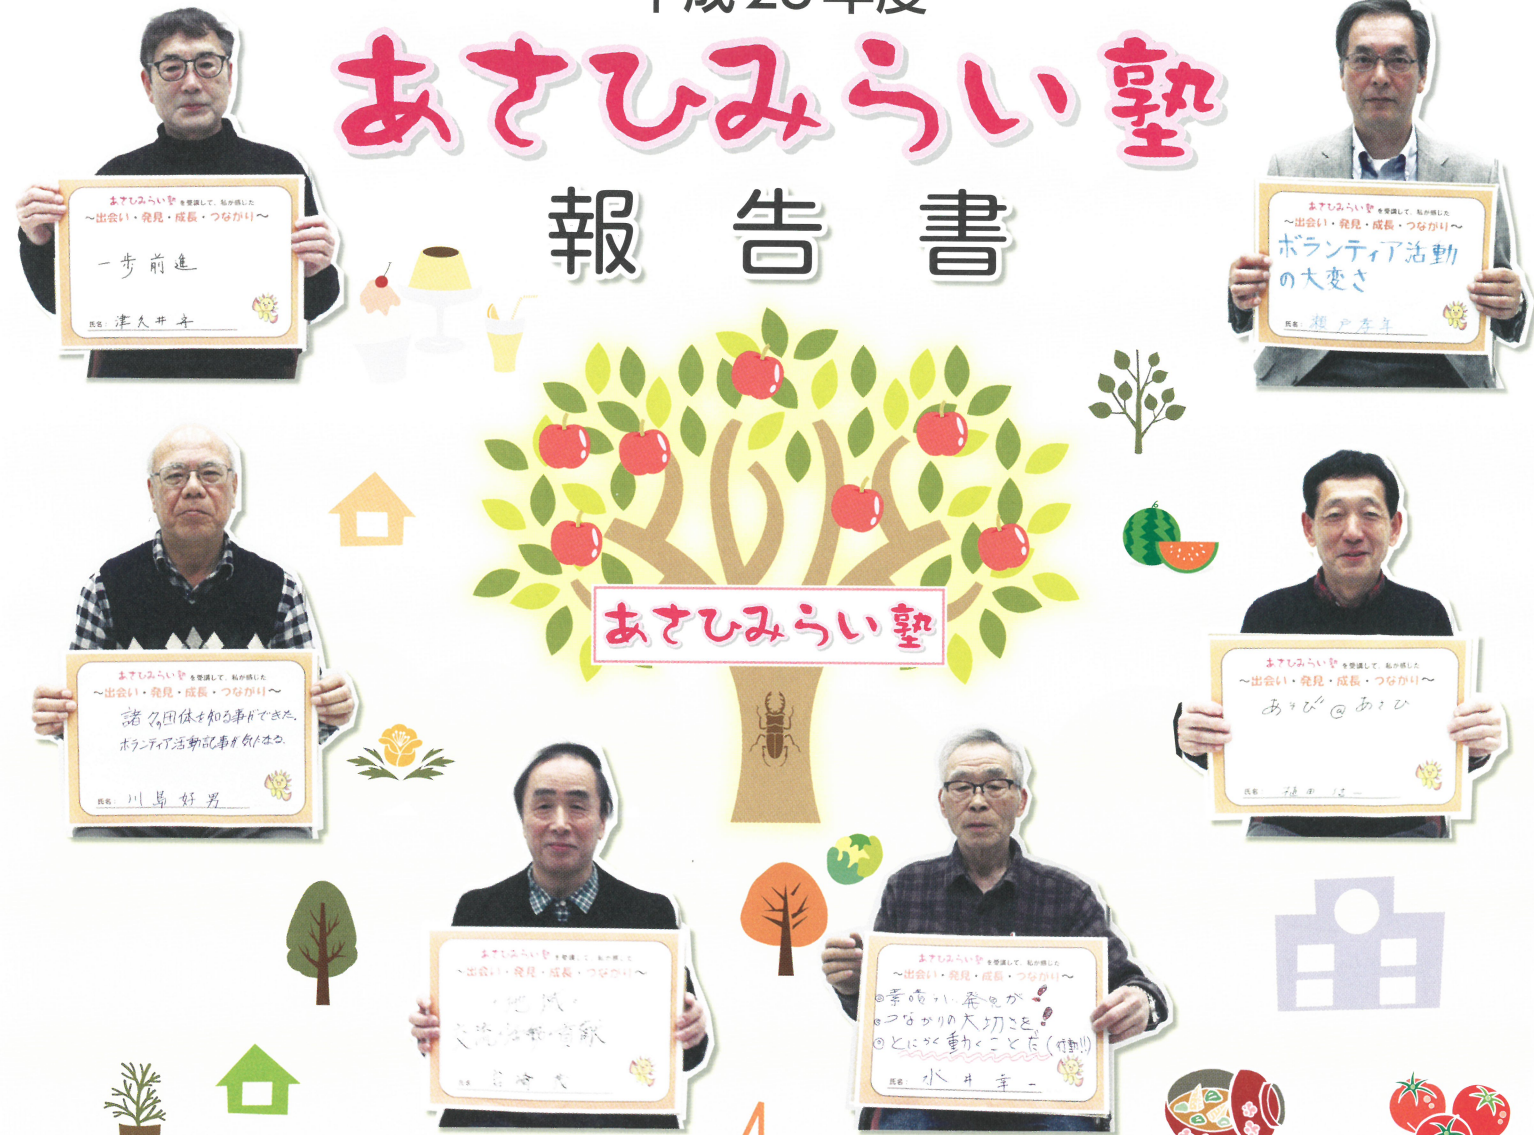 あさひみらい塾
報告書
あさひみらい塾を受講して、私が感じた
～出会い・発見・成長・つながり～
一歩前進
氏名: 津久井
あさひみらい塾を受講して、私が感じた
～出会い・発見・成長・つながり～
ボランティア活動
の大変さ
氏名: 瀬戸孝年
あさひみらい塾
あさひみらい塾を受講して、私が感じた
～出会い・発見・成長・つながり～
諸々の団体を知る事ができた。
ボランティア活動記事が気になる。
氏名: 川島好男
あさひみらい塾を受講して、私が感じた
～出会い・発見・成長・つながり～
あそび@あさひ
氏名: 福田 一
あさひみらい塾を受講して、私が感じた
～出会い・発見・成長・つながり～
氏名:
あさひみらい塾を受講して、私が感じた
～出会い・発見・成長・つながり～
素晴しい発見が
つながりの大切さを
とにかく動くことだ(行動!!)
氏名: 水井幸一